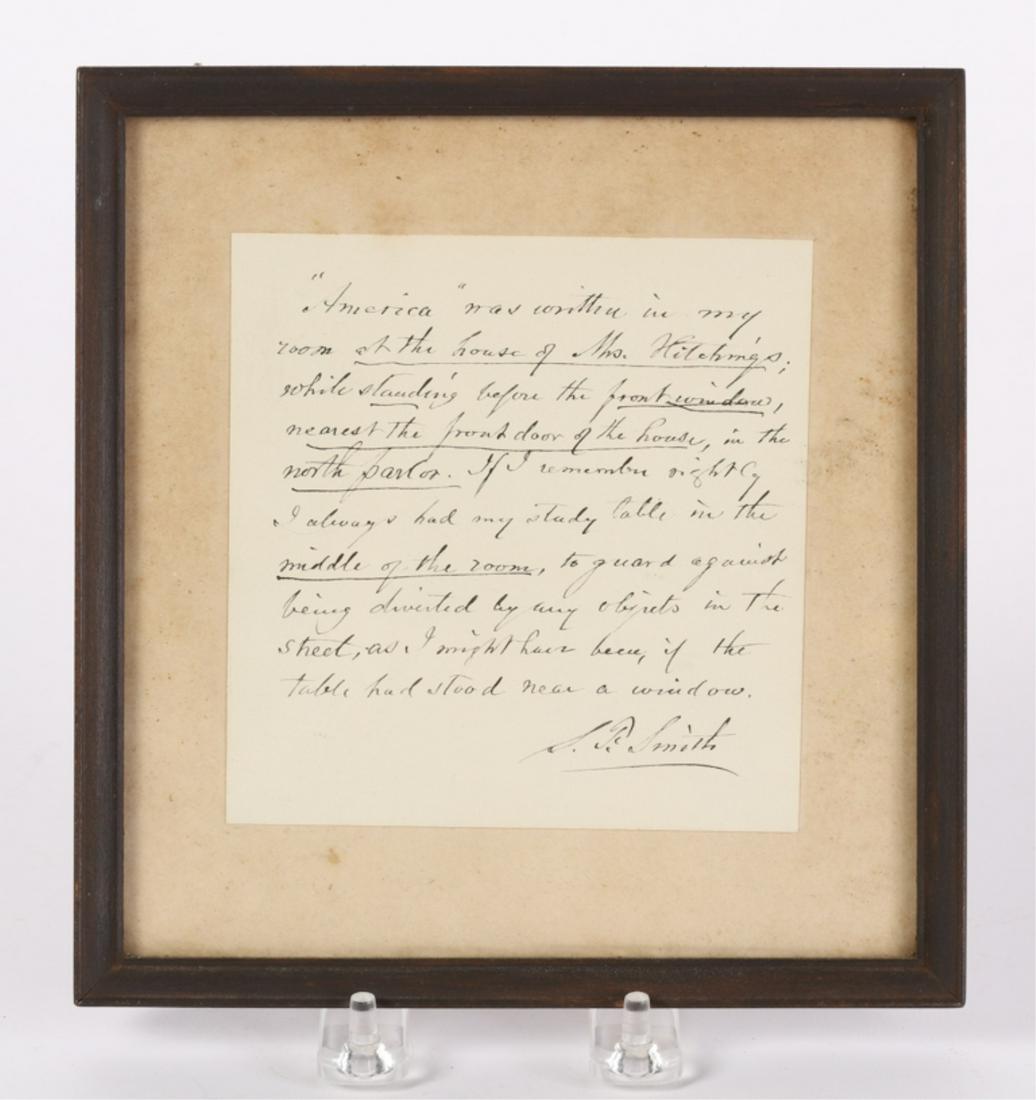 "America" was written in my
room at the house of Mrs. Hitchings;
while standing before the front window,
nearest the front door of the house, in the
north parlor. If I remember rightly
I always had my study table in the
middle of the room, to guard against
being diverted by any objects in the
street, as I might have been, if the
table had stood near a window.
S. F. Smith